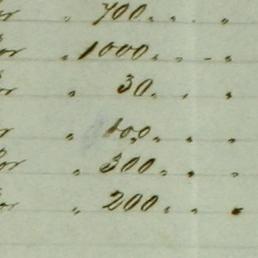 or " 700 " " "
or " 1000 " " "
or " 30 " " "
or " 100 " " "
or " 300 " " "
or " 200 " " "